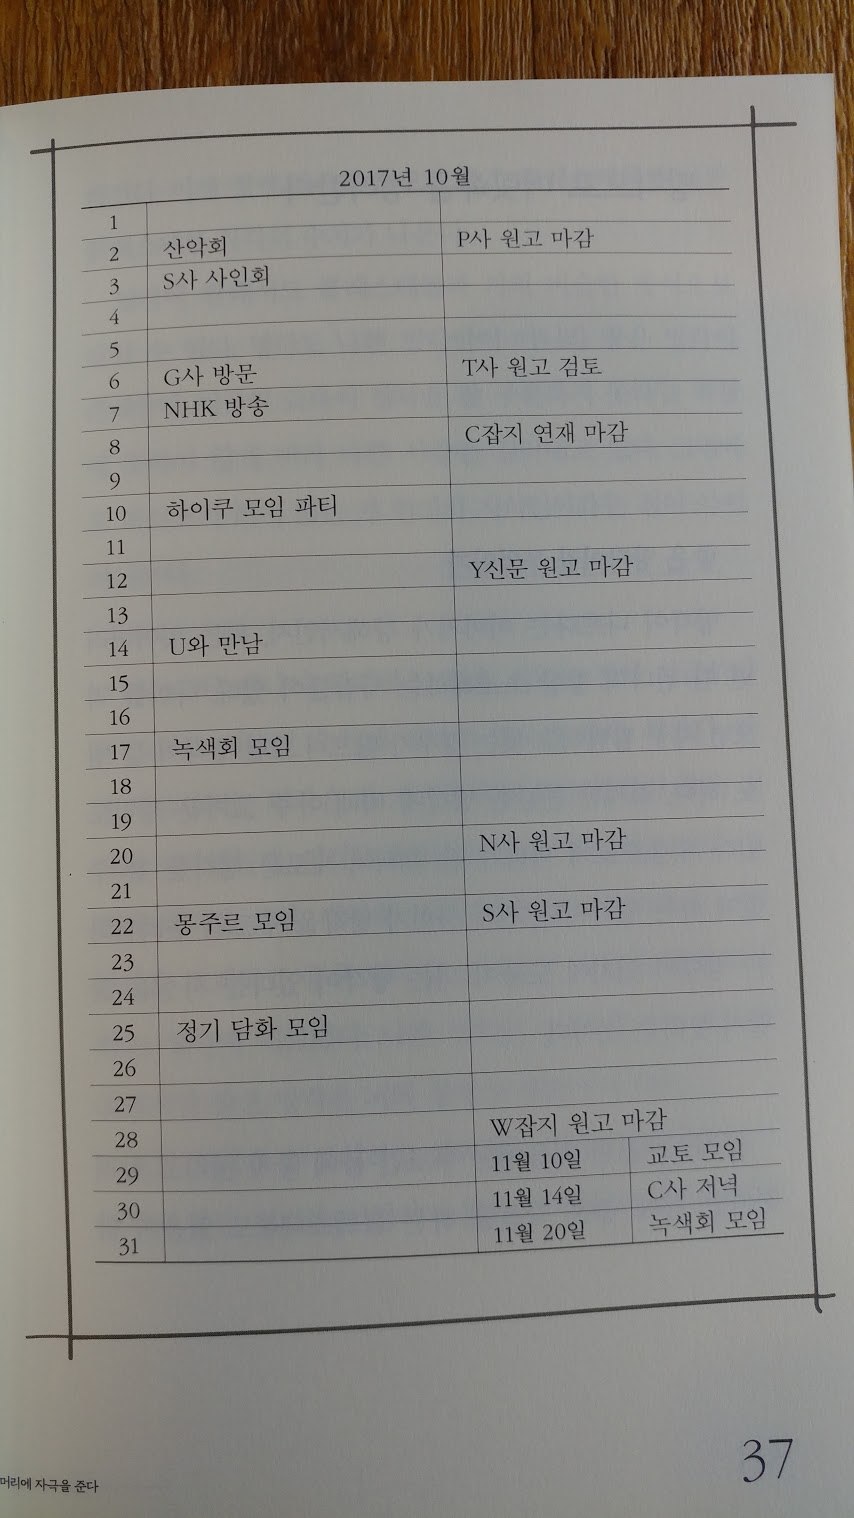 2017년 10월
1
2 산악회 P사 원고 마감
3 S사 사인회
4
5
6 G사 방문 T사 원고 검토
7 NHK 방송
8 C잡지 연재 마감
9
10 하이쿠 모임 파티
11
12 Y신문 원고 마감
13
14 U와 만남
15
16
17 녹색회 모임
18
19
20 N사 원고 마감
21
22 몽주르 모임 S사 원고 마감
23
24
25 정기 담화 모임
26
27
28 W잡지 원고 마감
29 11월 10일 교토 모임
30 11월 14일 C사 저녁
31 11월 20일 녹색회 모임
머리에 자극을 준다
37